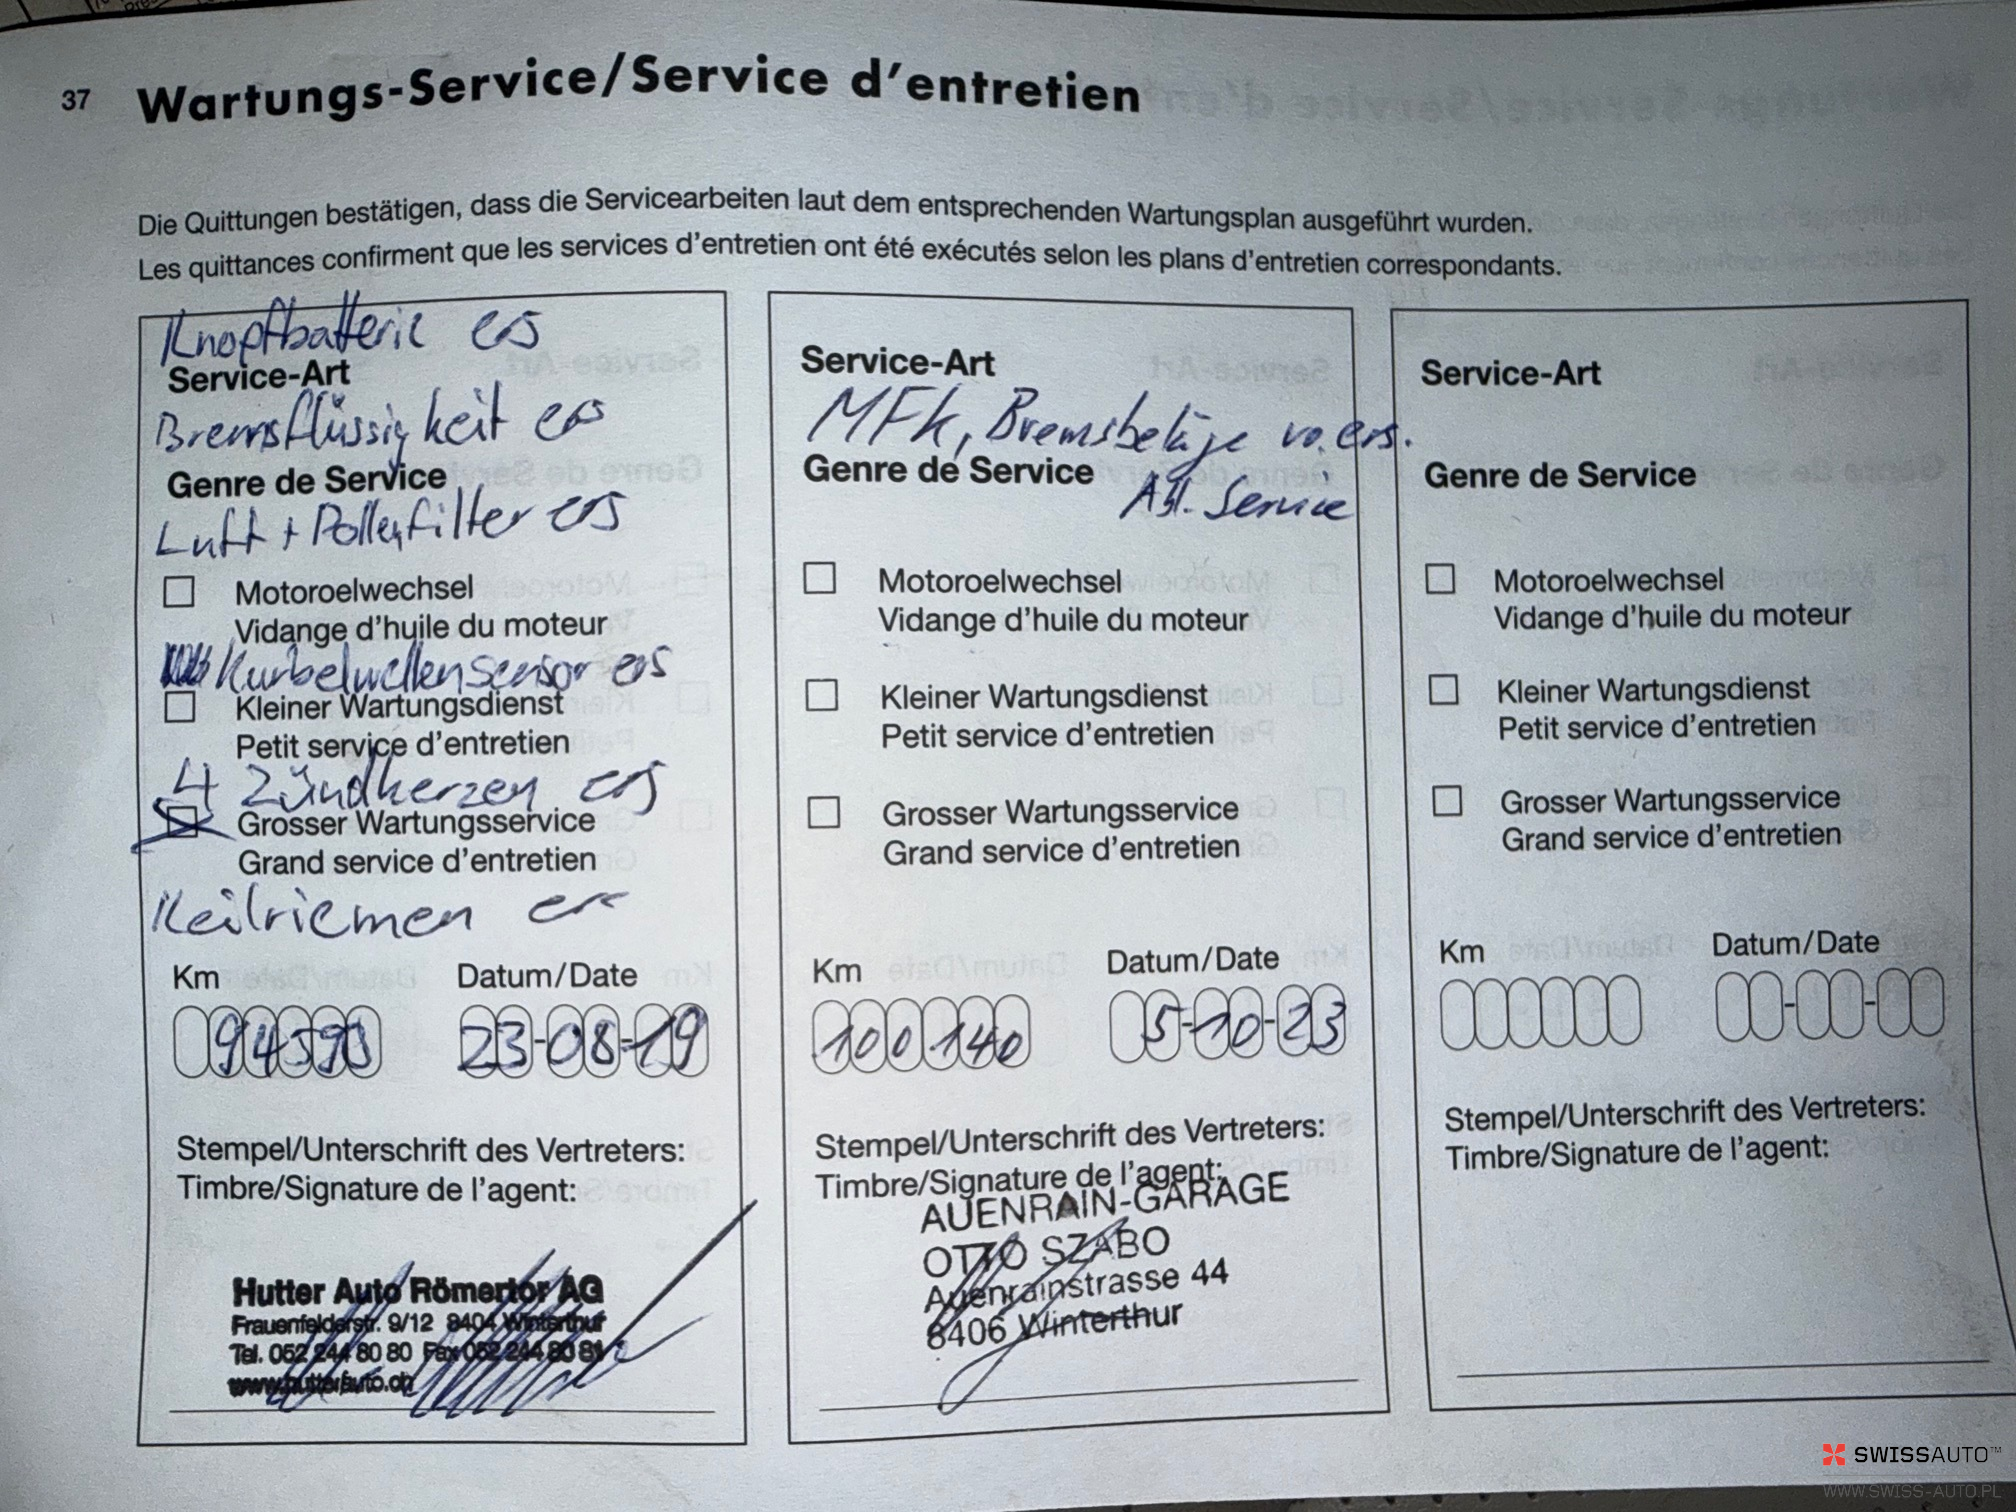 37 Wartungs-Service/Service d'entretien
Die Quittungen bestätigen, dass die Servicearbeiten laut dem entsprechenden Wartungsplan ausgeführt wurden.
Les quittances confirment que les services d'entretien ont été exécutés selon les plans d'entretien correspondants.
Knopfbatterie ers
Service-Art
Bremsflüssigkeit ers
Genre de Service
Luft + Pollenfilter ers
Motoroelwechsel
Vidange d'huile du moteur
Kurbelwellensensor ers
Kleiner Wartungsdienst
Petit service d'entretien
4 Zündkerzen ers
Grosser Wartungsservice
Grand service d'entretien
Keilriemen ers
Km Datum/Date
94590 23-08-19
Stempel/Unterschrift des Vertreters:
Timbre/Signature de l'agent:
Hutter Auto Römertor AG
Frauenfelderstr. 9/12 8404 Winterthur
Tel. 052 244 80 80 Fax 052 244 80 81
www.hutterauto.ch
Service-Art
MFK, Bremsbeläge vo. ers.
Genre de Service
Service
Motoroelwechsel
Vidange d'huile du moteur
Kleiner Wartungsdienst
Petit service d'entretien
Grosser Wartungsservice
Grand service d'entretien
Km Datum/Date
100140 5-10-23
Stempel/Unterschrift des Vertreters:
Timbre/Signature de l'agent:
AUENRAIN-GARAGE
OTTO SZABO
Auenrainstrasse 44
8406 Winterthur
Service-Art
Genre de Service
Motoroelwechsel
Vidange d'huile du moteur
Kleiner Wartungsdienst
Petit service d'entretien
Grosser Wartungsservice
Grand service d'entretien
Km Datum/Date
Stempel/Unterschrift des Vertreters:
Timbre/Signature de l'agent:
SWISSAUTO™
WWW.SWISS-AUTO.PL